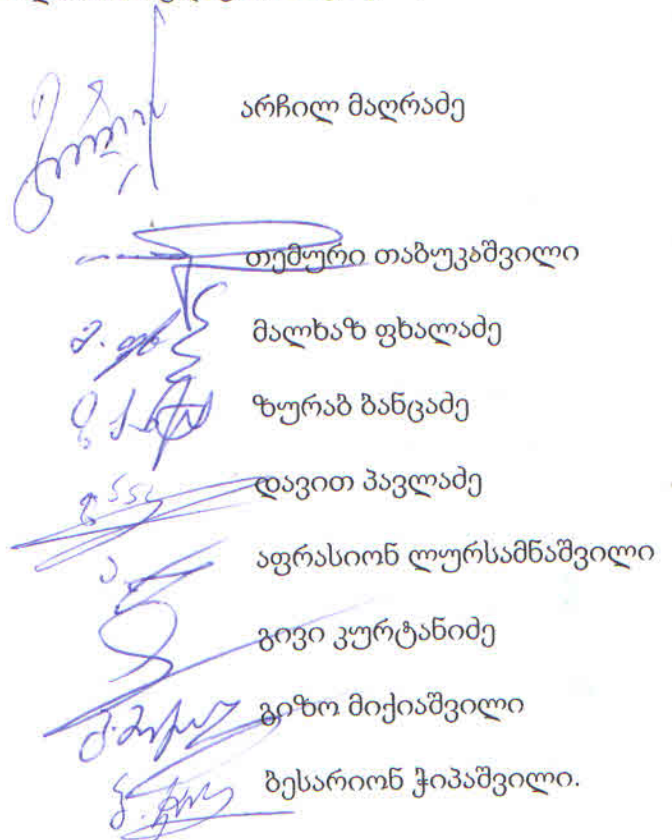 არჩილ მაღრაძე
თემური თაბუკაშვილი
მალხაზ ფხალაძე
ზურაბ ბანცაძე
დავით პავლაძე
აფრასიონ ლურსამნაშვილი
გივი კურტანიძე
გიზო მიქიაშვილი
ბესარიონ ჭიპაშვილი.